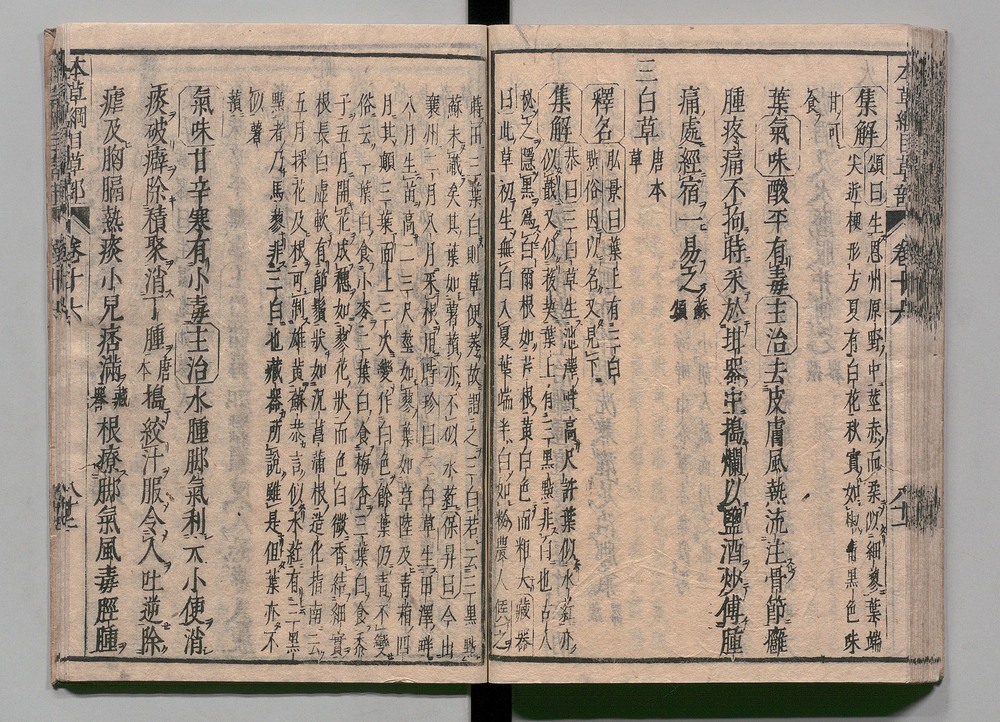 本草綱目草部 卷十六
集解 頌曰生思州原野中莖赤而柔似細蓼葉端
尖近梗形方夏有白花秋實如椒青黑色味
甘可
食
葉氣味酸平有毒主治去皮膚風熱流注骨節癰
腫疼痛不拘時采於坩器中搗爛以鹽酒炒傅腫
痛處經宿一易之 蘇頌
三白草 唐本草
釋名 弘景曰葉上有三白
點俗因以名又見下
集解 恭曰三白草生池澤畔高尺許葉似水葒亦
似蕺又似菝葜葉上有三黑點非白也古人
秘之隱黑為白爾根如芹根黃白色而粗大藏器
曰此草初生無白入夏葉端半白如粉農人候之
蒔田三葉白則草便秀故謂之三白若云三黑點
蘇未識矣其葉如薯蕷亦不似水葒保昇曰今出
襄州二月八月采根用時珍曰三白草生田澤畔
八月生苗高二三尺莖如蓼葉如商陸及青葙四
月其顛三葉面上三次變作白色餘葉仍青不變
俗云一葉白食小麥二葉白食梅杏三葉白食黍
子五月開花成穗如蓼花狀而色白微香結細實
根長白虛軟有節鬚狀如泥菖蒲根造化指南云
五月采花及根可制雄黃蘇恭言似水葒有三黑
點者乃馬蓼非三白也藏器所說雖是但葉亦不
似薯
蕷
氣味甘辛寒有小毒主治水腫脚氣利大小便消
痰破癖除積聚消丁腫 唐本 搗絞汁服令人吐逆除
瘧及胸膈熱痰小兒痞滿 藏器 根療脚氣風毒脛腫
本草綱目草部 卷十六